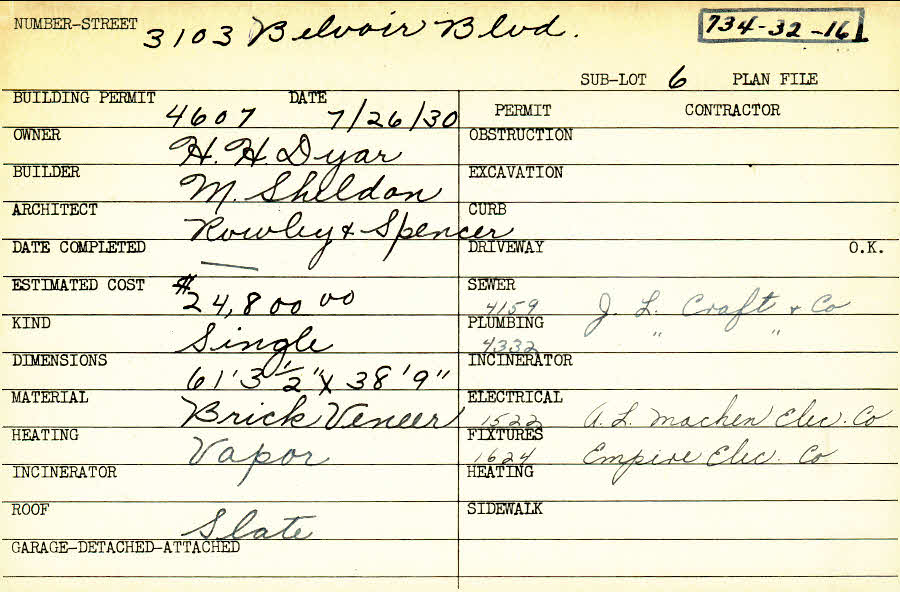 NUMBER-STREET 3103 Belvoir Blvd. 734-32-16
SUB-LOT 6 PLAN FILE
BUILDING PERMIT 4607 DATE 7/26/30
PERMIT CONTRACTOR
OWNER H. H. Dyar
OBSTRUCTION
BUILDER M. Sheldon
EXCAVATION
ARCHITECT Rowley & Spencer
CURB
DATE COMPLETED —
DRIVEWAY O.K.
ESTIMATED COST $24,800 00
SEWER 4159 J. L. Craft & Co
KIND Single
PLUMBING 4332 " "
DIMENSIONS 61'3 1/2" x 38'9"
INCINERATOR
MATERIAL Brick Veneer
ELECTRICAL 1522 A. L. Machen Elec. Co
HEATING Vapor
FIXTURES 1624 Empire Elec. Co
INCINERATOR
HEATING
ROOF Slate
SIDEWALK
GARAGE-DETACHED-ATTACHED